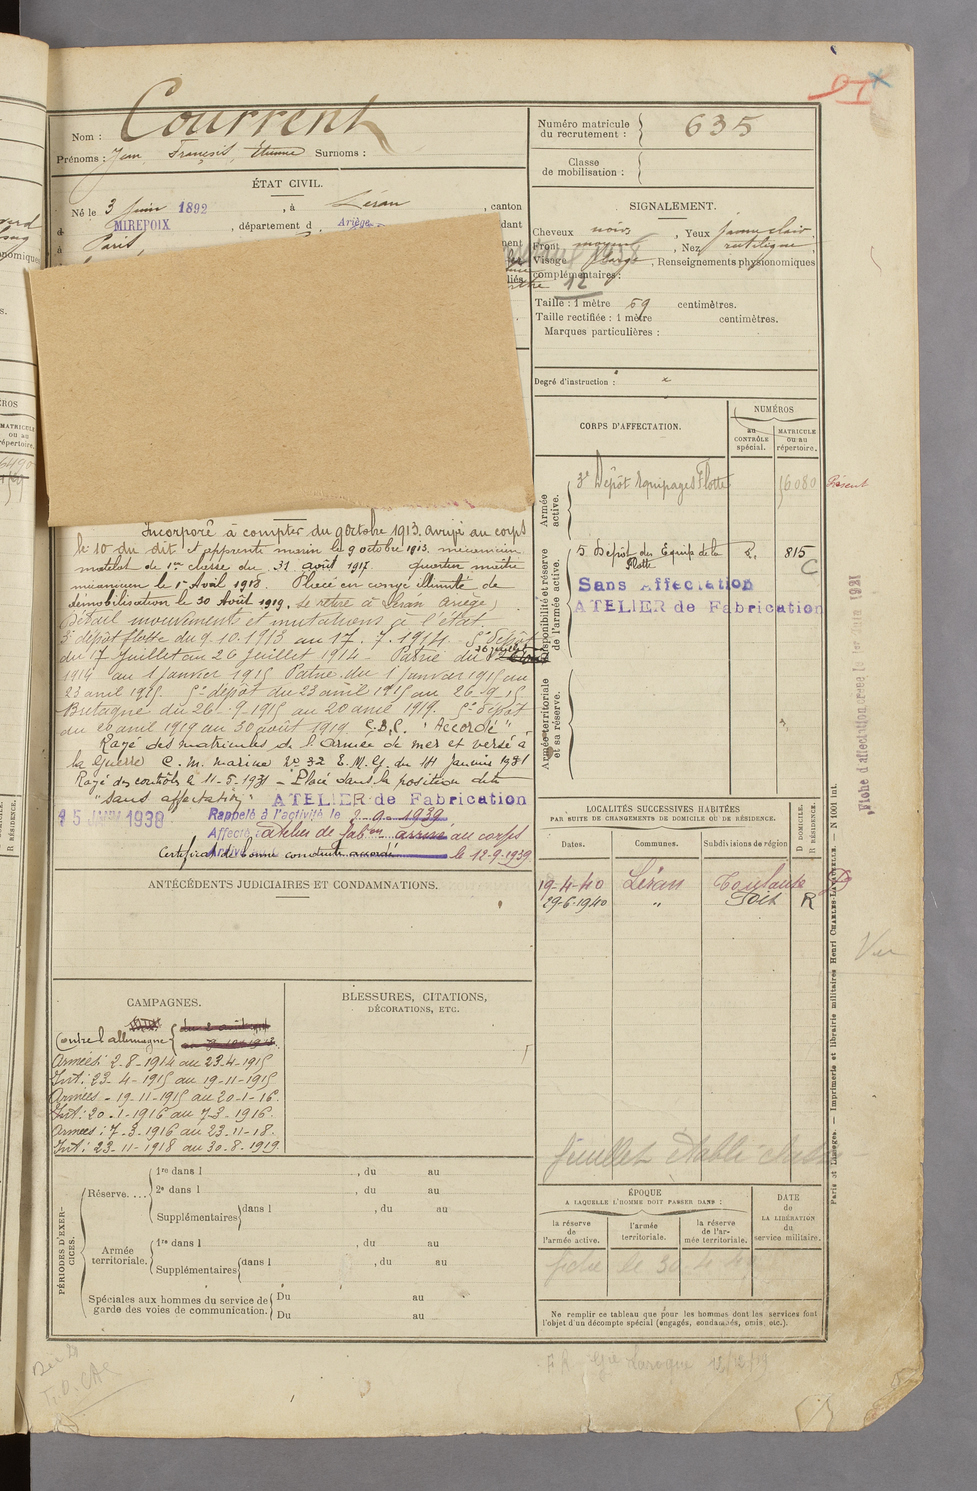 Nom : Courrent
Prénoms : Jean, François, Etienne Surnoms :
Numéro matricule du recrutement : 635
Classe de mobilisation :
ÉTAT CIVIL.
Né le 3 Juin 1892, à Léran, canton
d MIREPOIX, département d Ariège
à Paris
SIGNALEMENT.
Cheveux noirs, Yeux jaune clair,
Front moyen, Nez rectiligne,
Visage large, Renseignements physionomiques
complémentaires :
12
Taille : 1 mètre 69 centimètres.
Taille rectifiée : 1 mètre centimètres.
Marques particulières :
Degré d'instruction :
CORPS D'AFFECTATION.
NUMÉROS
au CONTRÔLE spécial.
MATRICULE ou au répertoire.
Armée active.
3e Dépôt Equipages Flotte 16080
Présent
Disponibilité et réserve de l'armée active.
5 Dépôt des Equip de la Flotte 2. 815
C
Sans Affectation
ATELIER de Fabrication
Armée territoriale et sa réserve.
Incorporé à compter du 9 octobre 1913. arrivé au corps
le 10 du dit et apprenti marin le 9 octobre 1913. mécanicien
matelot de 1re classe du 31 août 1917 quartier maître
mécanicien le 1er Avril 1918 Placé en congé illimité de
démobilisation le 30 Août 1919, se retire à Léran Ariège)
Détail mouvements et mutations
3e dépôt flotte du 9.10.1913 au 17.7.1914. 5e Dépôt
du 17 Juillet au 26 Juillet 1914 - Patrie du 26 juillet
1914 au 1 Janvier 1915 Patrie du 1 Janvier 1915 au
23 avril 1915. 5e dépôt du 23 avril 1915 au 26-9-15
Bretagne du 26.9-1915 au 20 avril 1919. 5e dépôt
du 20 avril 1919 au 30 août 1919. C.B.C. "Accordé"
Rayé des matricules de l'Armée de mer et versé à
la Guerre C.M. Marine No 32 E.M.G. du 14 Janvier 1931
Rayé des contrôles le 11-5-1931 - Placé dans la position dite
"sans affectation" ATELIER de Fabrication
15 JUIN 1938
Rappelé à l'activité le 2-9-1939
Affecté: atelier de fabon arrivé au corps
Certificat de bonne conduite accordé le 12-9-1939
ANTÉCÉDENTS JUDICIAIRES ET CONDAMNATIONS.
LOCALITÉS SUCCESSIVES HABITÉES
PAR SUITE DE CHANGEMENTS DE DOMICILE OU DE RÉSIDENCE.
Dates. Communes. Subdivisions de région
D DOMICILE.
R RÉSIDENCE.
19-4-40 Léran Toulouse D
29-6-1940 " Foix R
CAMPAGNES.
Contre l'allemagne
Armées: 2-8-1914 au 23-4-1915
Int: 23-4-1915 au 19-11-1915
Armées - 19-11-1915 au 20-1-16.
Int: 20-1-1916 au 7-3-1916.
Armées: 7-3-1916 au 23-11-18.
Int: 23-11-1918 au 30-8-1919
BLESSURES, CITATIONS,
DÉCORATIONS, ETC.
feuillet établi
PÉRIODES D'EXERCICES.
Réserve....
1re dans l , du au
2e dans l , du au
Supplémentaires dans l , du au
Armée territoriale.
1re dans l , du au
Supplémentaires dans l , du au
Spéciales aux hommes du service de garde des voies de communication.
Du au
Du au
ÉPOQUE
A LAQUELLE L'HOMME DOIT PASSER DANS :
la réserve de l'armée active.
l'armée territoriale.
la réserve de l'armée territoriale.
DATE de LA LIBÉRATION du service militaire.
fiche le 30.4
Ne remplir ce tableau que pour les hommes dont les services font
l'objet d'un décompte spécial (engagés, condamnés, omis, etc.).
Fiche d'affectation créée le 1er Juin 1931
Paris et Limoges. — Imprimerie et librairie militaires Henri CHARLES-LAVAUZELLE. — N 1001 Int.
Laroque 12/12/39